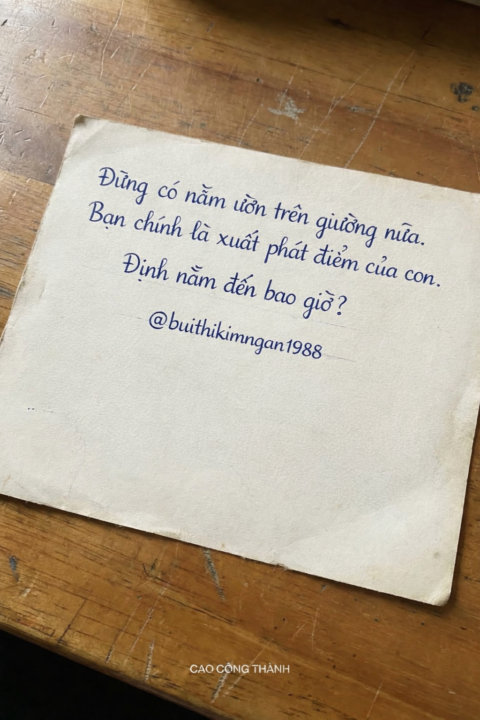 Đừng có nằm ườn trên giường nữa.
Bạn chính là xuất phát điểm của con.
Định nằm đến bao giờ?
@buithikimngan1988
CAO CÔNG THÀNH